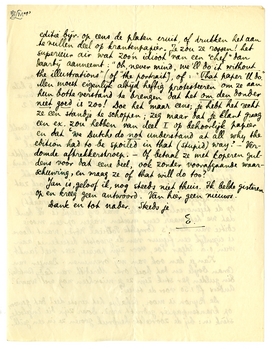 editie bijv op eens de platen eruit, of drukken het aan
te vullen deel op krantenpapier. Je zou 'es zoggen! het
superieure air wat zoo'n idioot van een "chef" dan
daarbij aanneemt: "oh never mind, we'll do it without
the illustrations" (of the portrait), of: "That paper'll do"
Men moet eigenlijk altijd heftig protesteeren om ze aan
hun botte verstand te brengen dat het om den donder
niet goed is zoo! Doe het maar eens; je hebt het recht
ze een standje te schoppen; zeg maar dat je klant graag
een ex. zou hebben van deel I op behoorlijk papier
en dat "we Dutch do not understand at all why the
edition had to be spoiled in that (stupid) way! – Ver-
domde aftrekkerstroep. – Of betaal ze met koperen gul-
dens voor dat eene deel, ook zonder voorafgaande waar-
schuwing, en vraag ze of that will do too?
Jan is, geloof ik, nog steeds niet thuis. Ik belde gisteren
op en kreeg geen antwoord. Van hier geen nieuws.
Dank en tot nader. Steeds je
S.